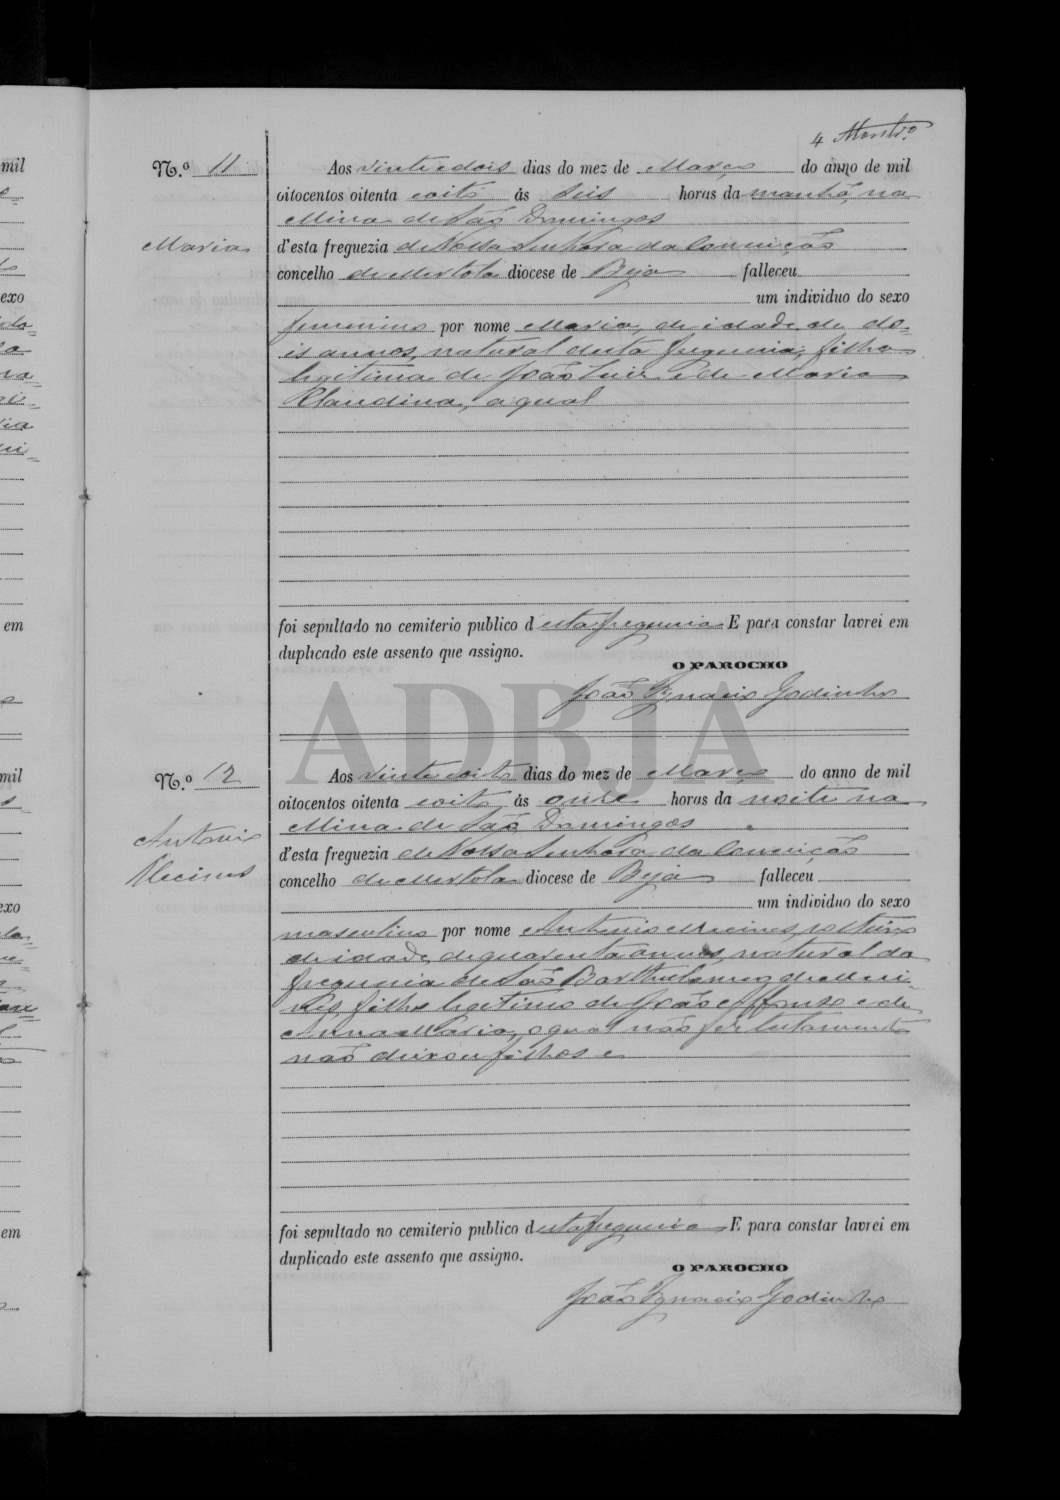 4 Montr.º
N.º 11
Aos vinte e dois dias do mez de Março do anno de mil
oitocentos oitenta e oito ás seis horas da manhã, na
Mina de São Domingos
Maria
d'esta freguezia de Nossa Senhora da Conceição
concelho de Mertola diocese de Beja falleceu
um individuo do sexo
feminino por nome Maria, de idade de do-
is annos, natural desta freguezia, filha
legitima de João Luiz e de Maria
Claudina, a qual
foi sepultado no cemiterio publico d'esta freguezia E para constar lavrei em
duplicado este assento que assigno.
O PAROCHO
João Ignacio Godinho
ADBJA
N.º 12
Aos vinte oito dias do mez de Março do anno de mil
oitocentos oitenta e oito ás onze horas da noite na
Mina de São Domingos
Antonio
d'esta freguezia de Nossa Senhora da Conceição
concelho de Mertola diocese de Beja falleceu
um individuo do sexo
masculino por nome Antonio solteiro
de idade de quarenta annos, natural da
freguezia de São Barthulomeo de
filho legitimo de João Affonso e de
Anna Maria, o qual não fez testamento
não deixou filhos e
foi sepultado no cemiterio publico d'esta freguezia E para constar lavrei em
duplicado este assento que assigno.
O PAROCHO
João Ignacio Godinho
mil
exo
em
mil
exo
em